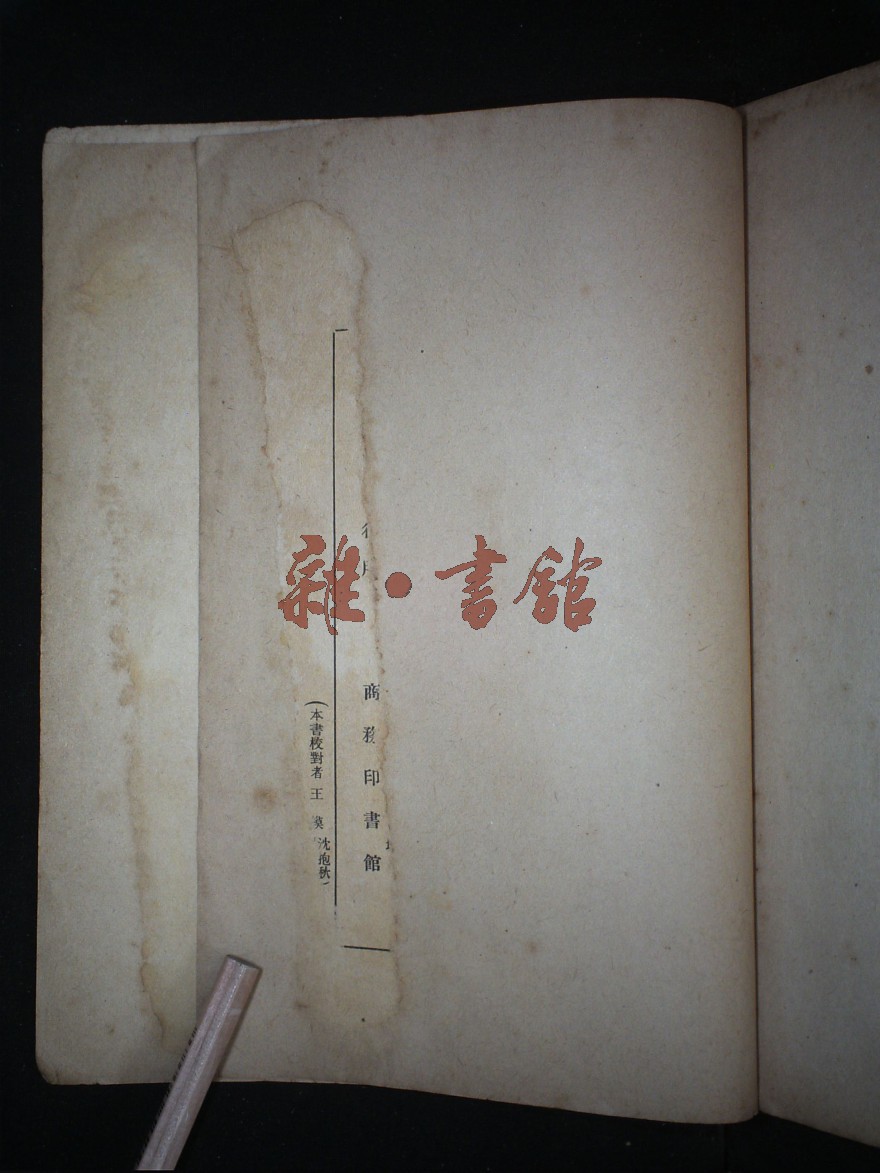 雜·書館
商務印書館
(本書校對者 王 沈抱秋)